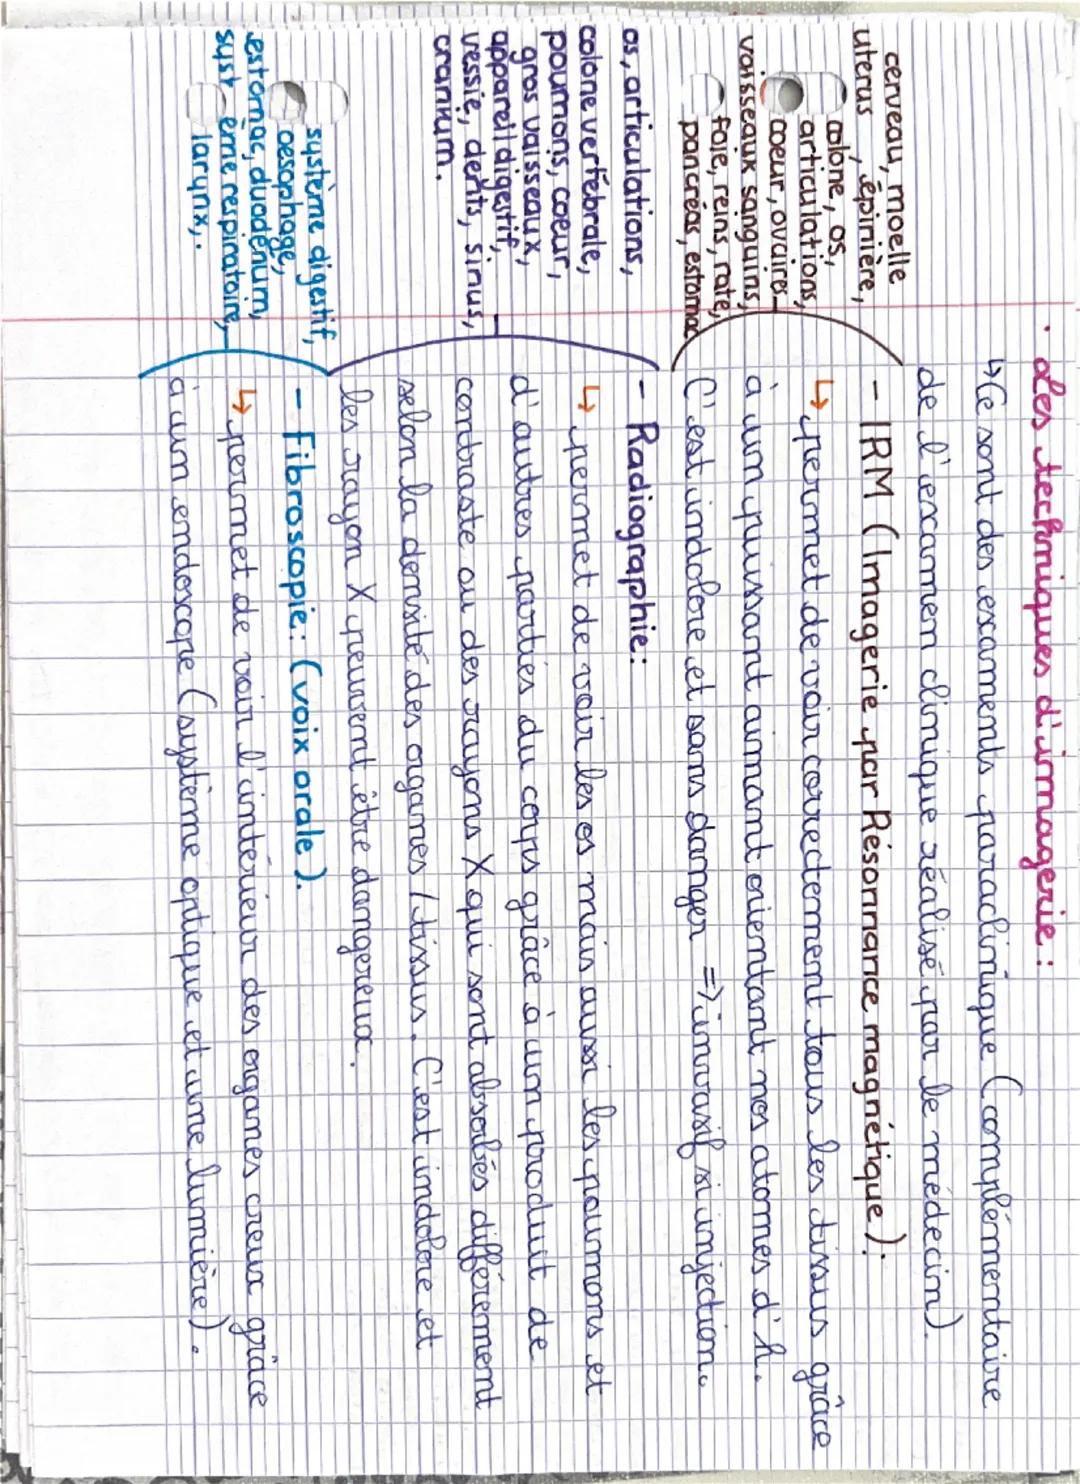 · Les techniques d'imagerie :
↳ Ce sont des examents paraclinique (complémentaire
de l'escammen clinique réalisé par le médecin).
- IRM (Imagerie par Résonnance magnétique).
↳ permet de voir correctement tous les tissus grâce
à un puissant aimant orientant nos atomes d'h.
C'est indolore et sans danger => invasif si injection.
cerveau, moelle
uterus, épinière,
colone, os,
articulations,
coeur, ovaires
vaisseaux sanguins,
foie, reins, rate,
pancréas, estomac
- Radiographie :
↳ permet de voir les os mais aussi les poumons et
d'autres parties du corps grâce à un produit de
contraste ou des rayons X qui sont absorbés différement
selon la densité des organes / tissus. C'est indolore et
les rayon X peuvent être dangereux.
os, articulations,
colone vertébrale,
poumons, coeur,
gros vaisseaux,
appareil digestif,
vessie, dents, sinus,
cranium.
- Fibroscopie : (voix orale).
↳ permet de voir l'intérieur des organes creux grâce
à un endoscope (système optique et une lumière).
système digestif,
oesophage,
estomac, duodénum,
syst ème respiratoire,
larynx,.